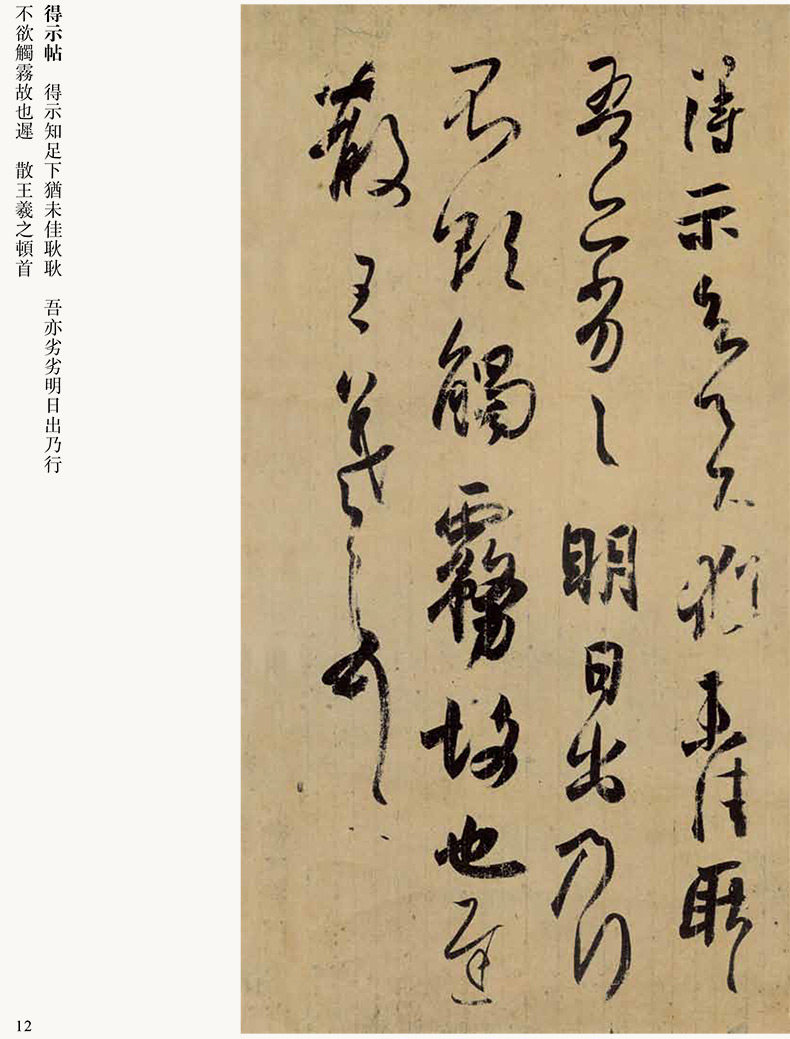 得示知足下猶未佳耿耿
吾亦劣劣明日出乃行
不欲觸霧故也遲
散王羲之頓首
得示帖　得示知足下猶未佳耿耿　吾亦劣劣明日出乃行
不欲觸霧故也遲　散王羲之頓首
12